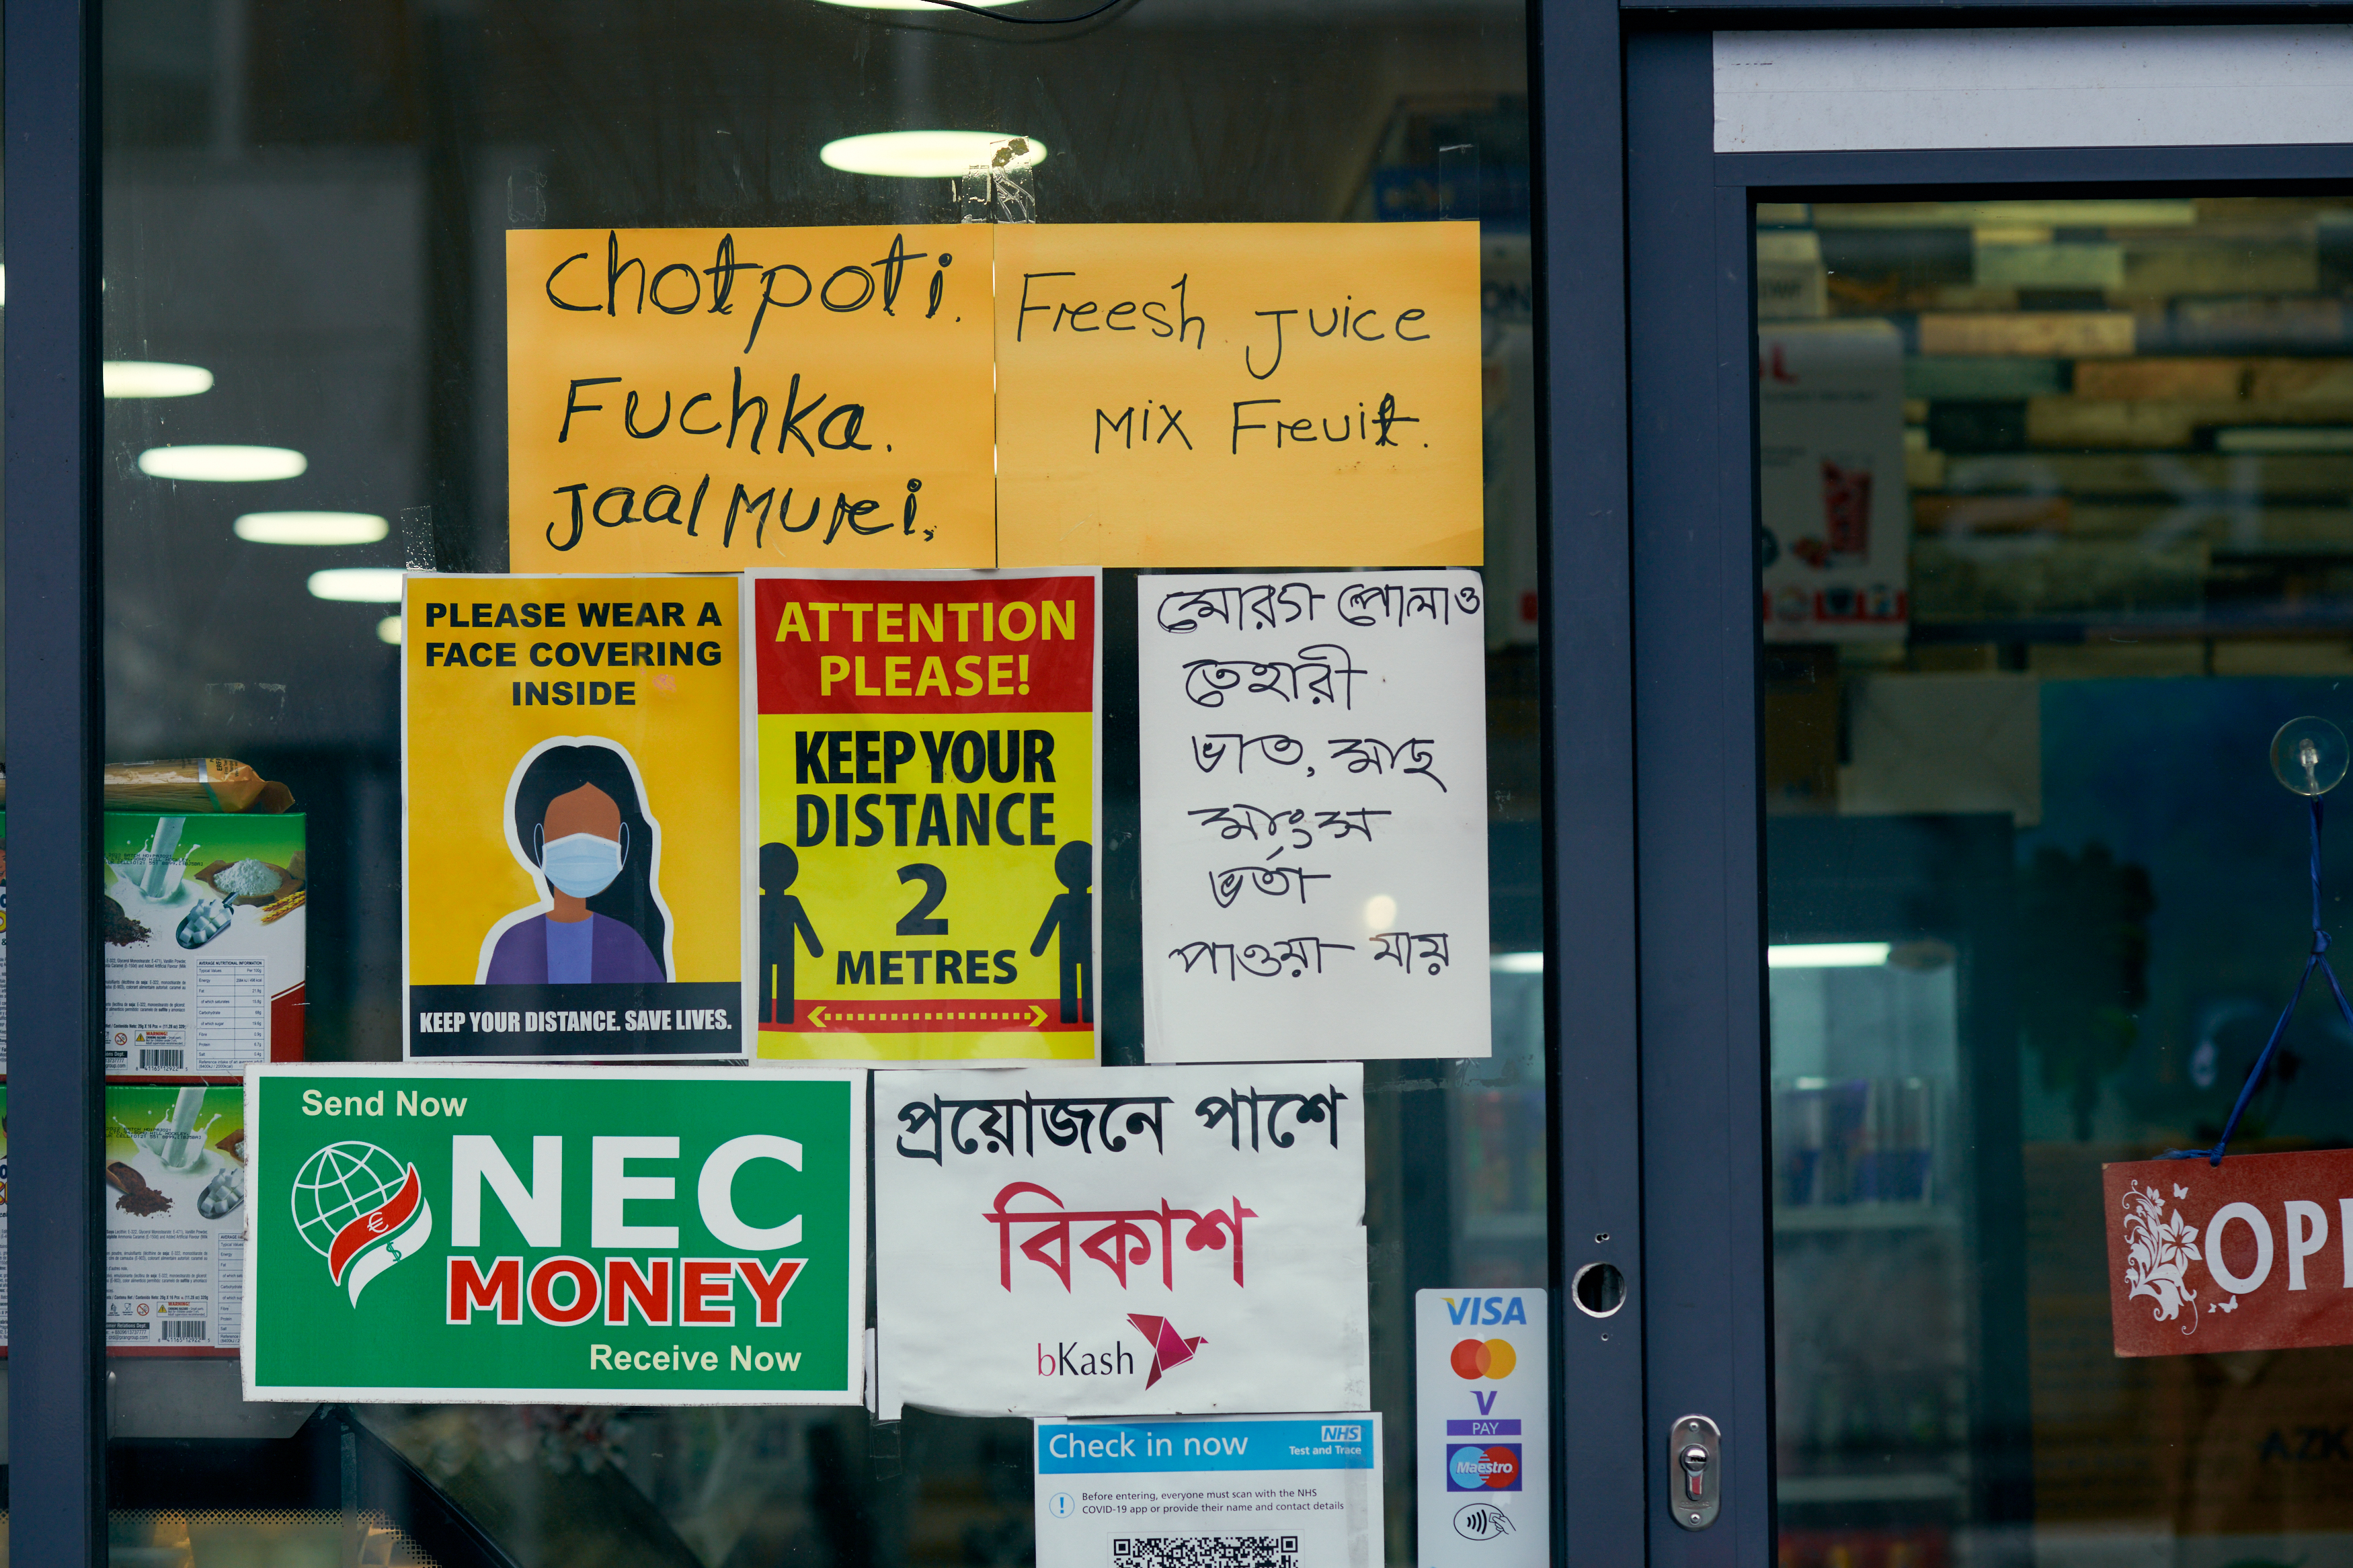 Chotpoti.
Fuchka.
Jaal Murei.
Freesh Juice
Mix Freuit.
PLEASE WEAR A
FACE COVERING
INSIDE
KEEP YOUR DISTANCE. SAVE LIVES.
ATTENTION
PLEASE!
KEEP YOUR
DISTANCE
2
METRES
মোরগ পোলাও
তেহারী
ভাত, মাছ
মাংস
ভর্তা
পাওয়া যায়
Send Now
NEC
MONEY
Receive Now
প্রয়োজনে পাশে
বিকাশ
bKash
Check in now
NHS
Test and Trace
Before entering, everyone must scan with the NHS
COVID-19 app or provide their name and contact details
VISA
V
PAY
Maestro
OPE